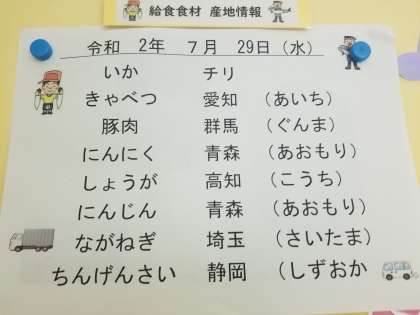 給食食材 産地情報
令和 2年 7月 29日（水）
いか チリ
きゃべつ 愛知 （あいち）
豚肉 群馬 （ぐんま）
にんにく 青森 （あおもり）
しょうが 高知 （こうち）
にんじん 青森 （あおもり）
ながねぎ 埼玉 （さいたま）
ちんげんさい 静岡 （しずおか